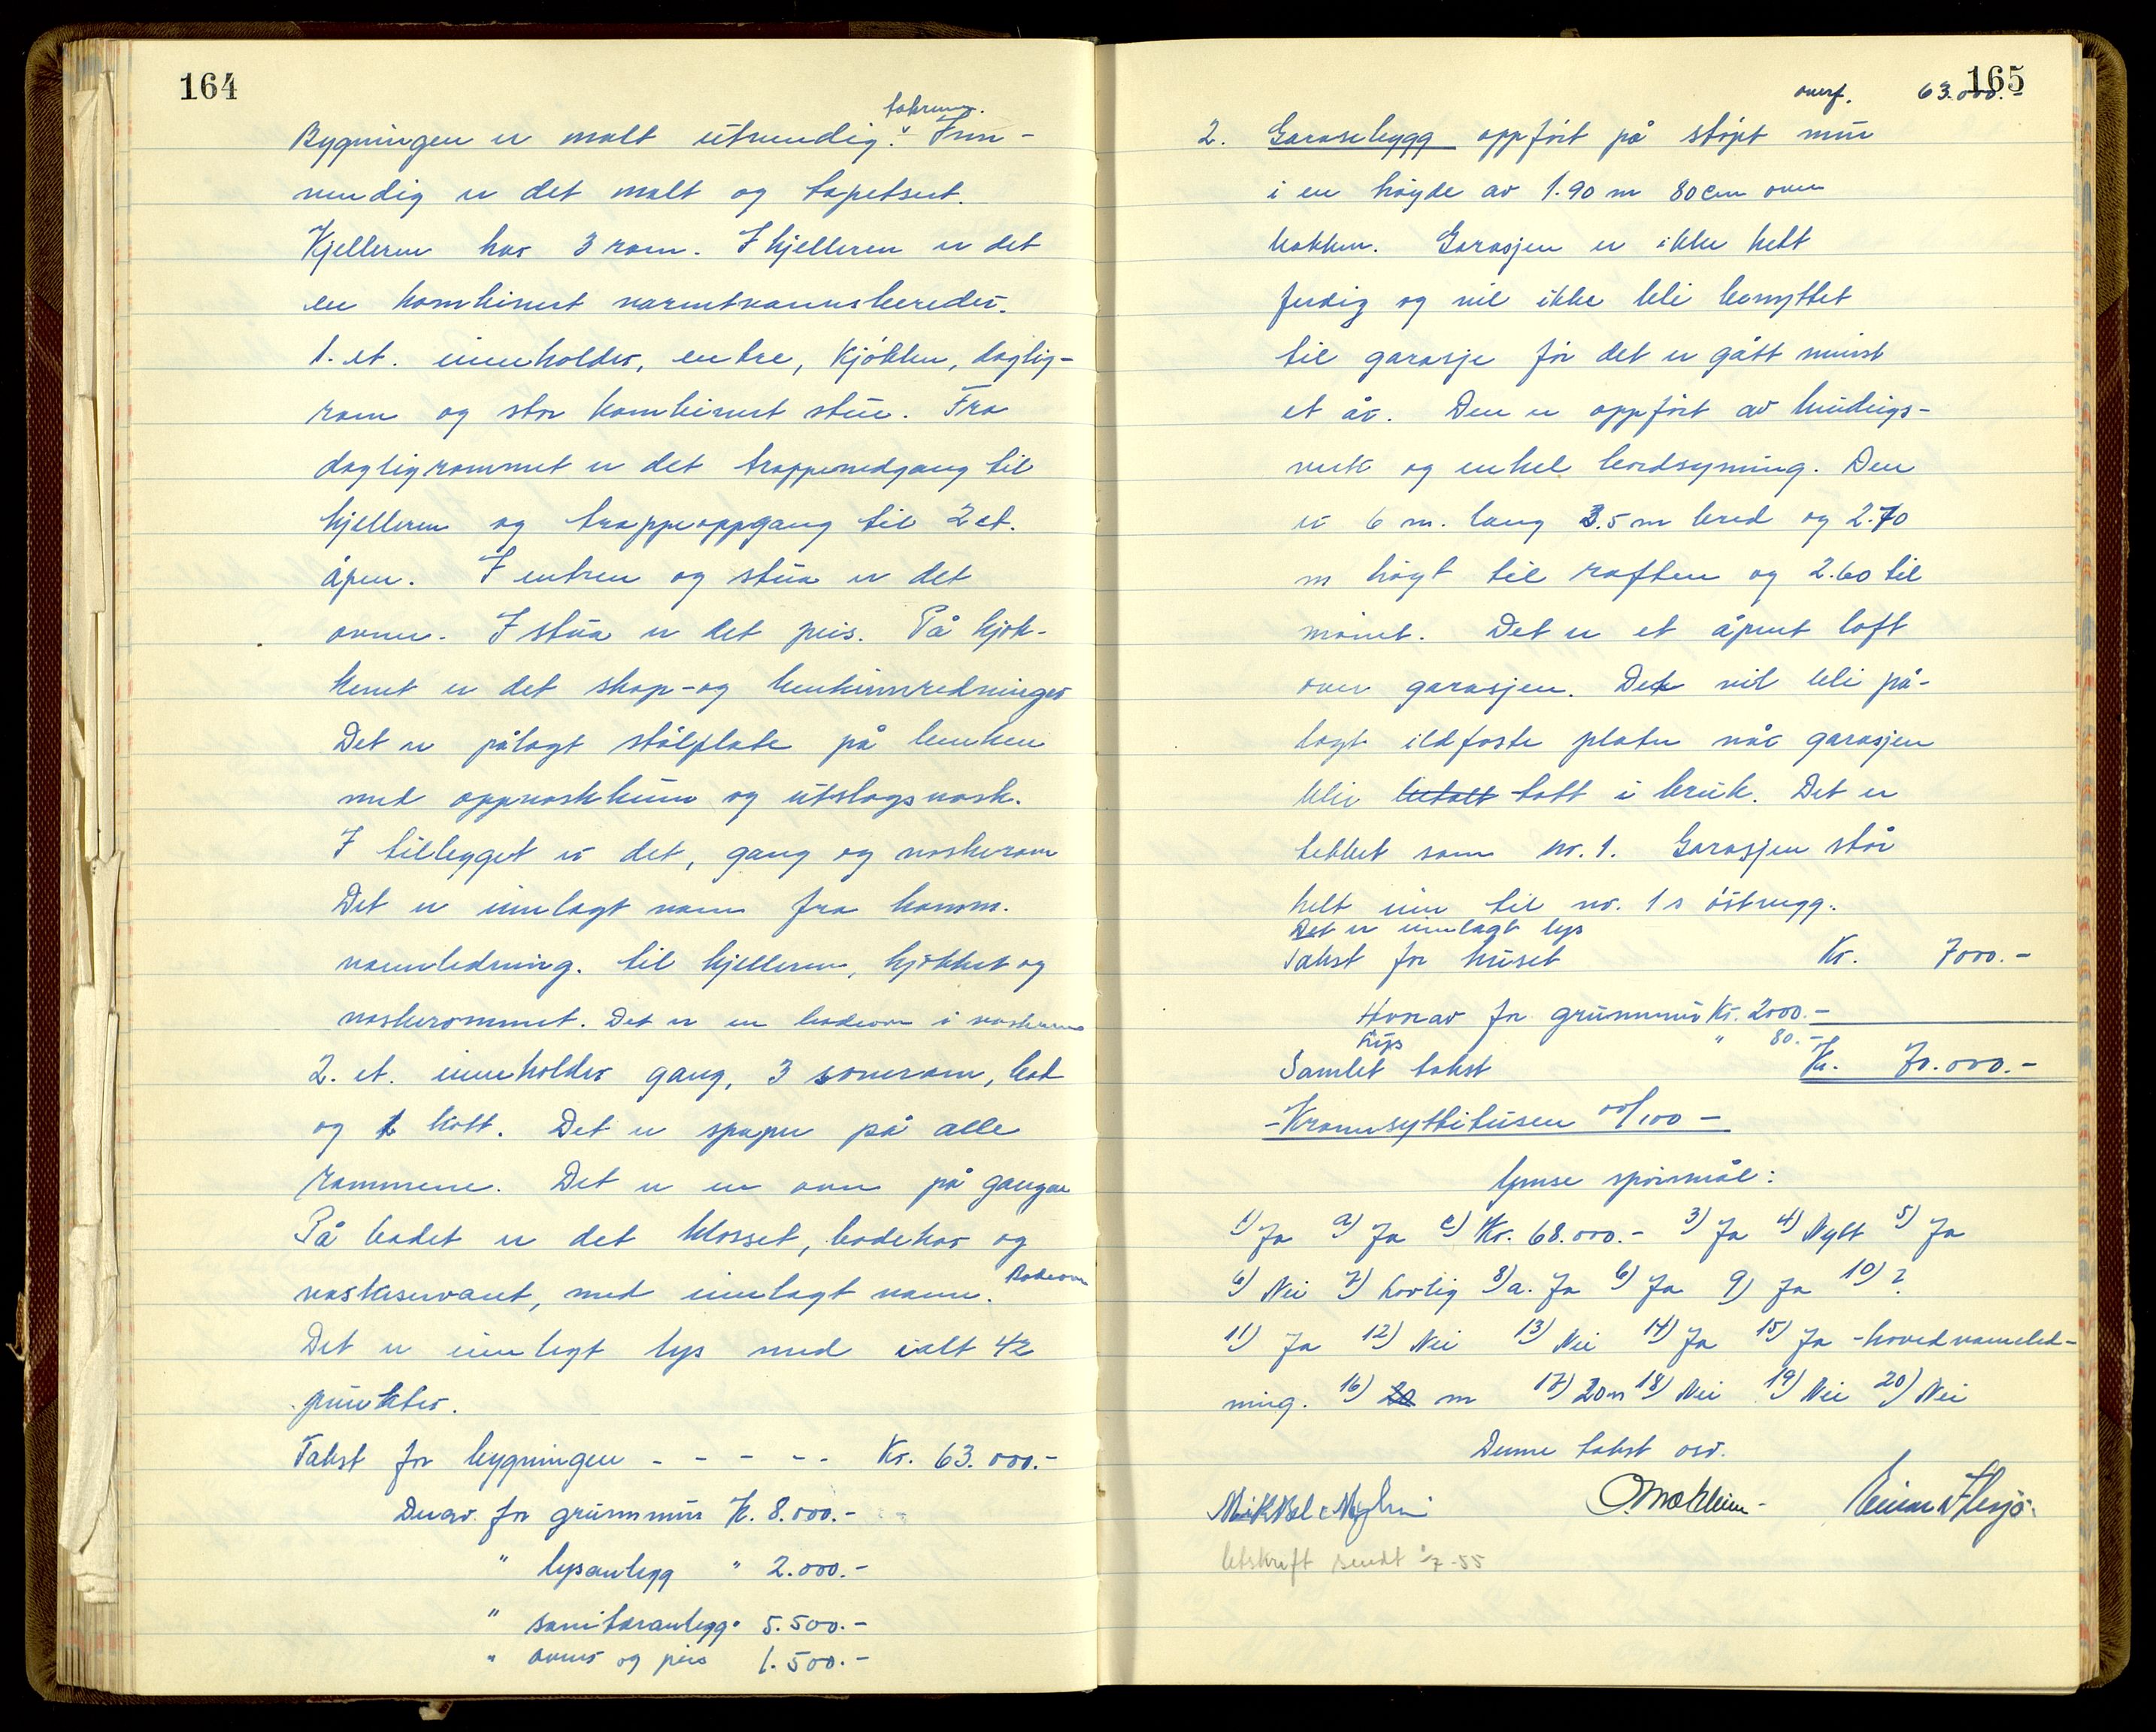 164
takrenner.
Bygningen er malt utvendig. v Inn-
vendig er det malt og tapetsert.
Kjelleren har 3 rom. I kjelleren er det
en kombinert varmtvannsbereder.
1. et. inneholder, entre, kjøkken, daglig-
rom og stor kombinert stue. Fra
dagligrommet er det trappenedgang til
kjelleren og trappeoppgang til 2 et.
åpen. I entren og stua er det
ovner. I stua er det peis. På kjøk-
kenet er det skap- og benkinnredninger
Det er pålagt stålplate på benken
med oppvaskkum og utslagsvask.
I tillegget er det, gang og vaskerom
Det er innlagt vann fra komm.
vannledning. til kjelleren, kjøkket og
vaskerommet. Det er en badeovn i vaskerom
2. et. inneholder gang, 3 soverom, bad
og 1 kott. Det er i på alle
rommene. Det er en ovn på gangen
På badet er det klosset, badekar og
vaskeservant, med innlagt vann. Badeovn
Det er innlagt lys med ialt 42
punkter.
Takst for bygningen - - - - - Kr. 63.000.-
Derav for grunnmur K. 8.000.-
" lysanlegg " 2.000.-
" sanitæranlegg " 5.500.-
" ovner og peis 1.500.-
165
overf. 63.000.-
2. Garasebygg oppført på støpt mur
i en høyde av 1.90 m 80 cm over
bakken. Garasjen er ikke helt
ferdig og vil ikke bli benyttet
til garasje før det er gått minst
et år. Den er oppført av bindigs-
verk og enkel bordsyning. Den
er 6 m. lang 3.5 m bred og 2.70
m høgt til raften og 2.60 til
mønet. Det er et åpent loft
over garasjen. Det vil bli på-
lagt ildfaste plater når garasjen
blir tatt i bruk. Det er
tekket som nr. 1. Garasjen står
helt inn til nr. 1s østvegg.
Det er innlagt lys
Takst for huset Kr. 7000.-
Hvorav for grunnmur Kr. 2000.-
Lys " 80.-
Samlet takst Kr. 70.000.-
-Kronersyttitusen 00/100 -
Ymse spørsmål:
1) Ja a) Ja c) Kr. 68.000.- 3) Ja 4) Nytt 5) Ja
6) Nei 7) Lovlig 8) a. Ja b) Ja 9) Ja 10) ?
11) Ja 12) Nei 13) Nei 14) Ja 15) Ja -hovedvannled-
ning. 16) 20 m 17) 20 m 18) Nei 19) Nei 20) Nei
Denne takst osv.
Mikkel
Einar
Utskrift sendt 7-55